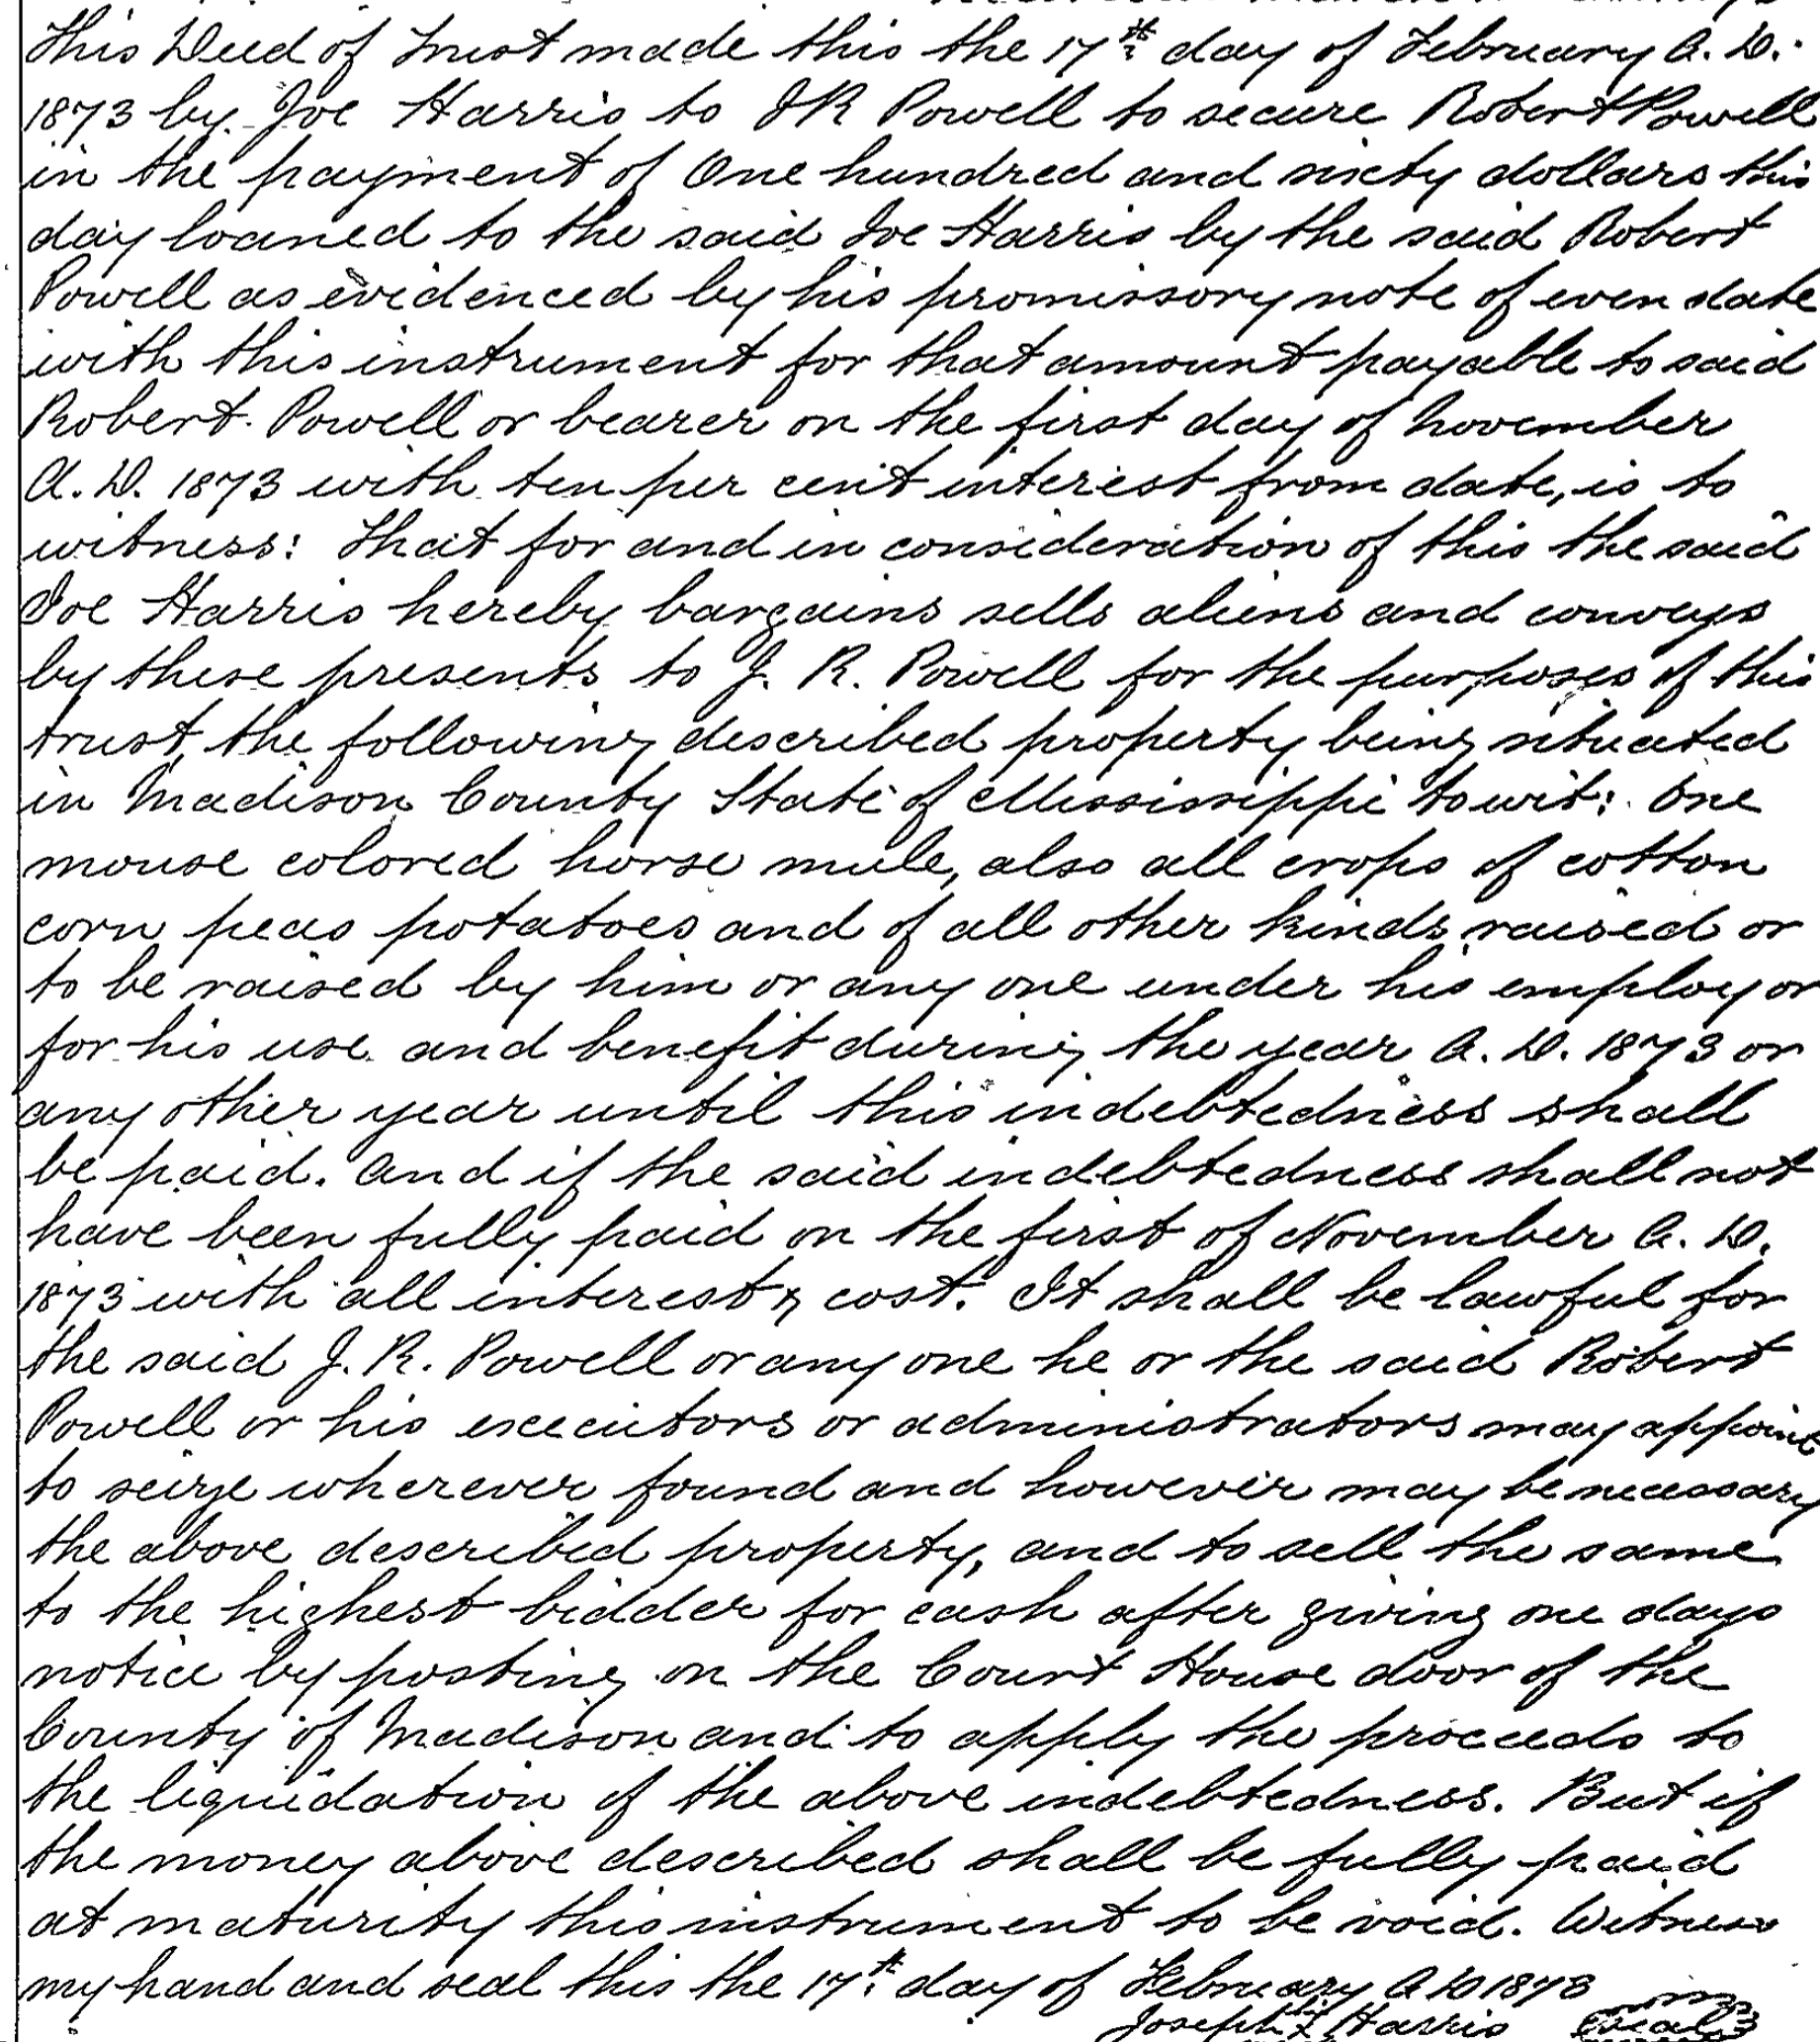 This Deed of Trust made this the 17th day of February A. D.
1873 by Joe Harris to JR Powell to secure Robert Powell
in the payment of One hundred and sixty dollars this
day loaned to the said Joe Harris by the said Robert
Powell as evidenced by his promissory note of even date
with this instrument for that amount payable to said
Robert Powell or bearer on the first day of November
A. D. 1873 with ten per cent interest from date, is to
witness: That for and in consideration of this the said
Joe Harris hereby bargains sells aliens and conveys
by these presents to J. R. Powell for the purposes of this
trust, the following described property being situated
in Madison County State of Mississippi towit: One
mouse colored horse mule, also all crops of cotton
corn peas potatoes and of all other kinds raised or
to be raised by him or any one under his employ or
for his use and benefit during the year A. D. 1873 or
any other year until this indebtedness shall
be paid. And if the said indebtedness shall not
have been fully paid on the first of November A. D.
1873 with all interest & cost. It shall be lawful for
the said J. R. Powell or any one he or the said Robert
Powell or his executors or administrators may appoint
to seize wherever found and however may be necessary
the above described property, and to sell the same
to the highest bidder for cash after giving one days
notice by posting on the Court House door of the
County of Madison and to apply the proceeds to
the liquidation of the above indebtedness. But if
the money above described shall be fully paid
at maturity this instrument to be void. Witness
my hand and seal this the 17th day of February A D 1873
Joseph his X Harris seal